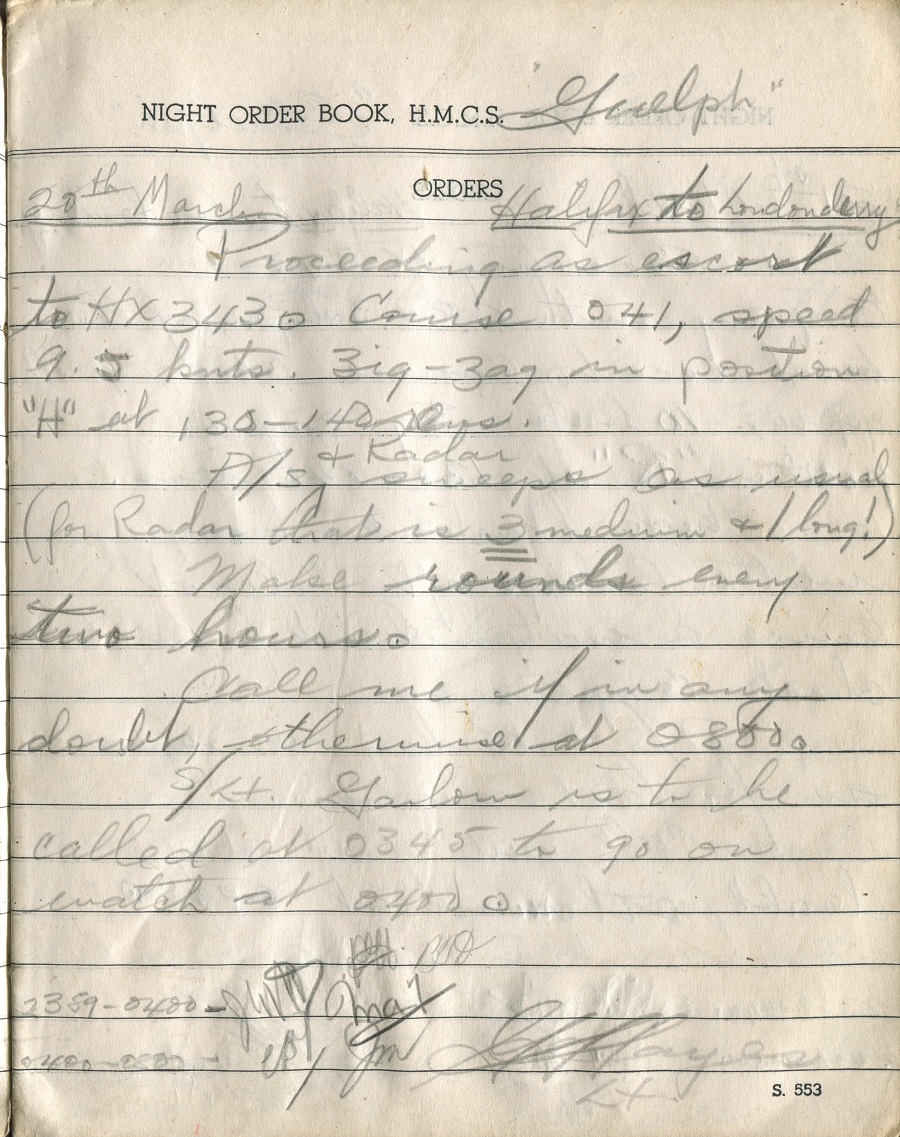 NIGHT ORDER BOOK, H.M.C.S. "Guelph"
ORDERS
20th March Halifax to Londonderry
Proceeding as escort
to HX 343. Course 041, speed
9.5 knts. Zig-zag in position
"H" at 130-140 revs.
A/S & Radar sweeps as usual
(for Radar that is 3 medium & 1 long!)
Make rounds every
two hours.
Call me if in any
doubt, otherwise at 0800.
S/Lt. is to be
called at 0345 to go on
watch at 0400.
2359-0400-
0400-0800-
Hayes
Lt.
S. 553